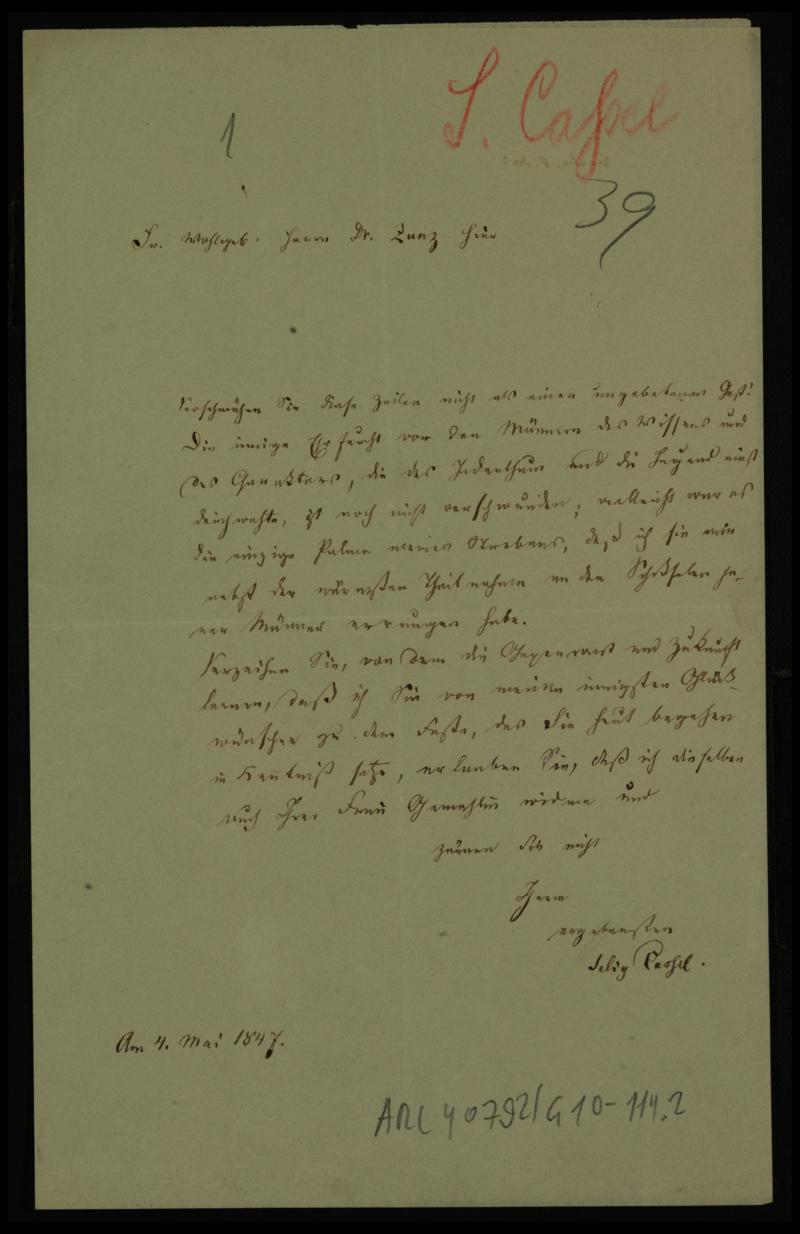 S. Cassel
1
39
Sr. Wohlgeb. Herrn Dr. Zunz hier
Verschmähen Sie diese Zeilen nicht als einen ungebetenen Gast!
Die innige Ehrfurcht vor den Männern des Wissens und
des Charakters, die das Judenthum und die Jugend einst
durchwehte, ist noch nicht verschwunden; vielleicht war es
die einzige Palme meines Strebens, daß ich sie mir
nebst der wärmsten Theilnahme an den Schiksalen je-
ner Männer errungen habe.
Verzeihen Sie, von dem die Gegenwart und Zukunft
lernen, daß ich Sie von meinen innigsten Glück-
wünschen zu dem Feste, das Sie heut begehen
in Kenntniß setze, erlauben Sie, daß ich dieselben
auch Ihrer Frau Gemahlin widme und
zürnen Sie nicht
Ihrem
ergebensten
Selig Cassel.
Am 4. Mai 1847.
ARC 4 0792/G10-114.2